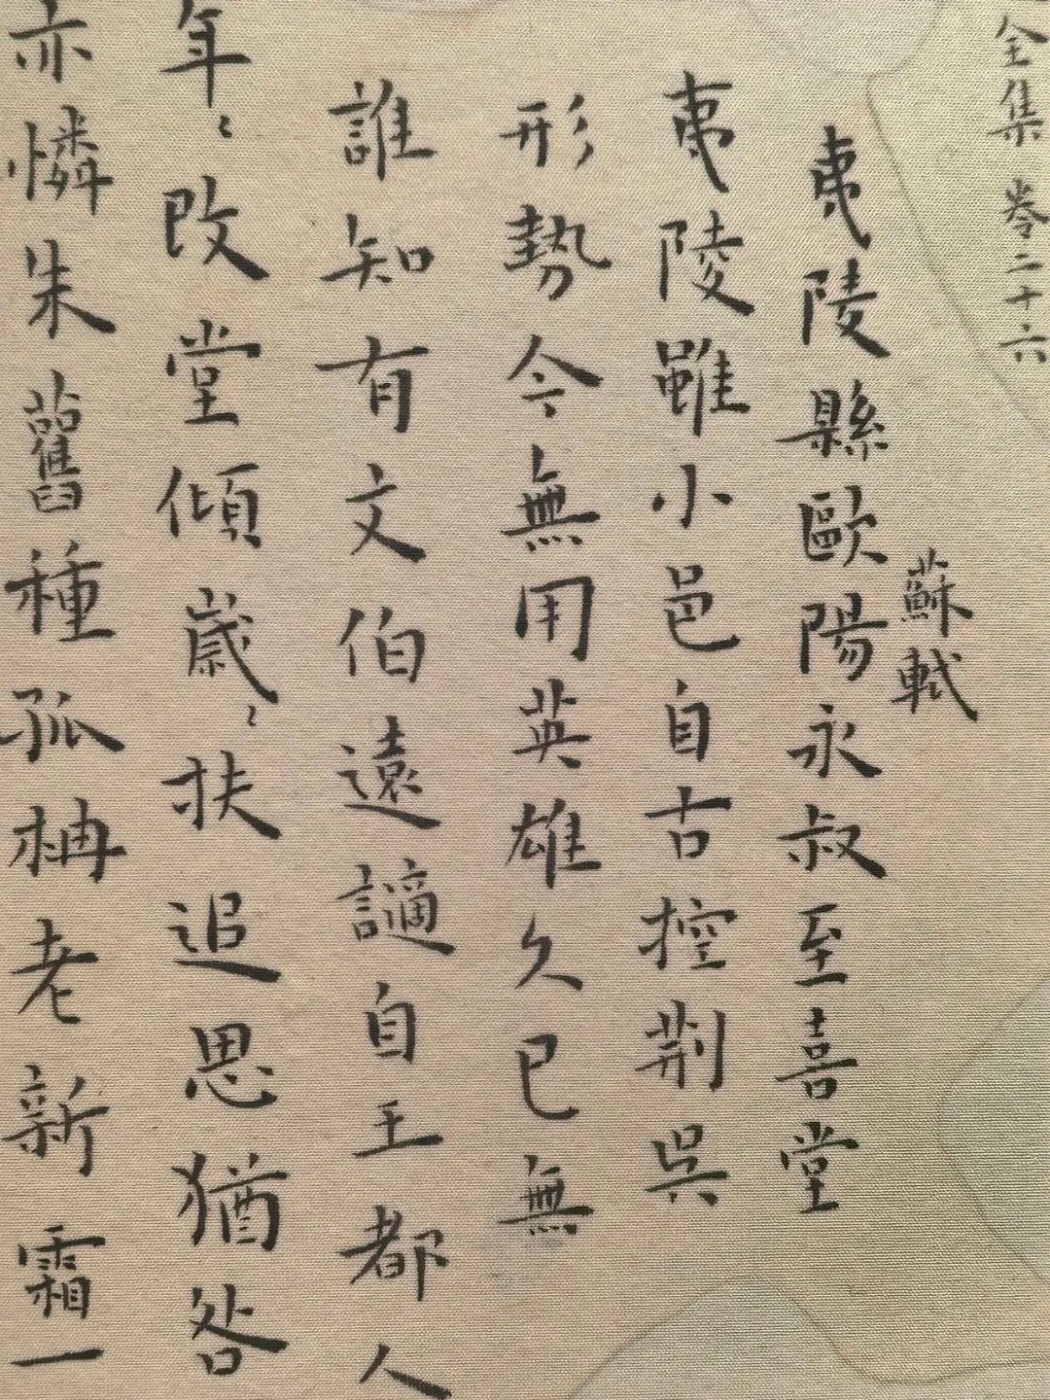 全集 卷二十六
蘇軾
夷陵縣歐陽永叔至喜堂
夷陵雖小邑自古控荆吳
形勢今無用英雄久已無
誰知有文伯遠讁自王都人
年〻改堂傾歲〻扶追思猶咎
亦憐朱舊種孤柟老新霜一